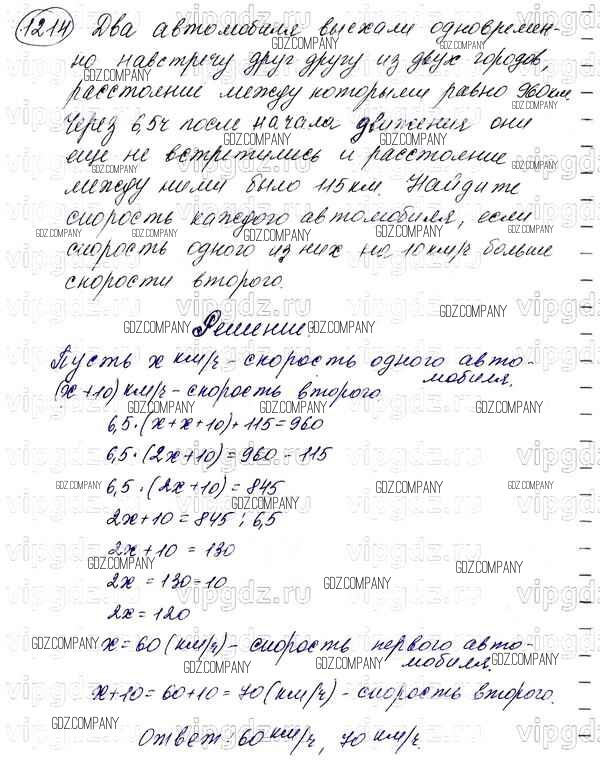 1214 Два автомобиля выехали одновремен-
но навстречу друг другу из двух городов,
расстояние между которыми равно 960 км.
Через 6,5 ч после начала движения они
еще не встретились и расстояние
между ними было 115 км. Найдите
скорость каждого автомобиля, если
скорость одного из них на 10 км/ч больше
скорости второго.
Решение.
Пусть x км/ч - скорость одного авто-
мобиля.
(x+10) км/ч - скорость второго
6,5·(x+x+10)+115=960
6,5·(2x+10)=960-115
6,5·(2x+10)=845
2x+10=845:6,5
2x+10=130
2x=130-10
2x=120
x=60 (км/ч) - скорость первого авто-
мобиля.
x+10=60+10=70 (км/ч) - скорость второго.
Ответ: 60 км/ч, 70 км/ч.
GDZ.COMPANY
vipgdz.ru